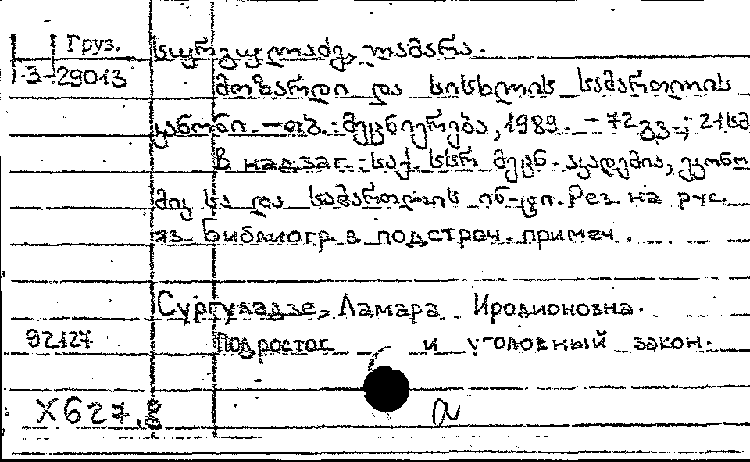 Груз.
3-29013
სურგულაძე, ლამარა.
მოზარდი და სისხლის სამართლის
კანონი. – თბ.: მეცნიერება, 1989. – 72 გვ.; 21 სმ
В надзаг.: საქ. სსრ მეცნ. აკადემია, ეკონო
მიკისა და სამართლის ინ-ტი. Рез. на рус.
яз. Библиогр. в подстроч. примеч.
Сургуладзе, Ламара Иродионовна.
92127
Подросток и уголовный закон.
X627.8